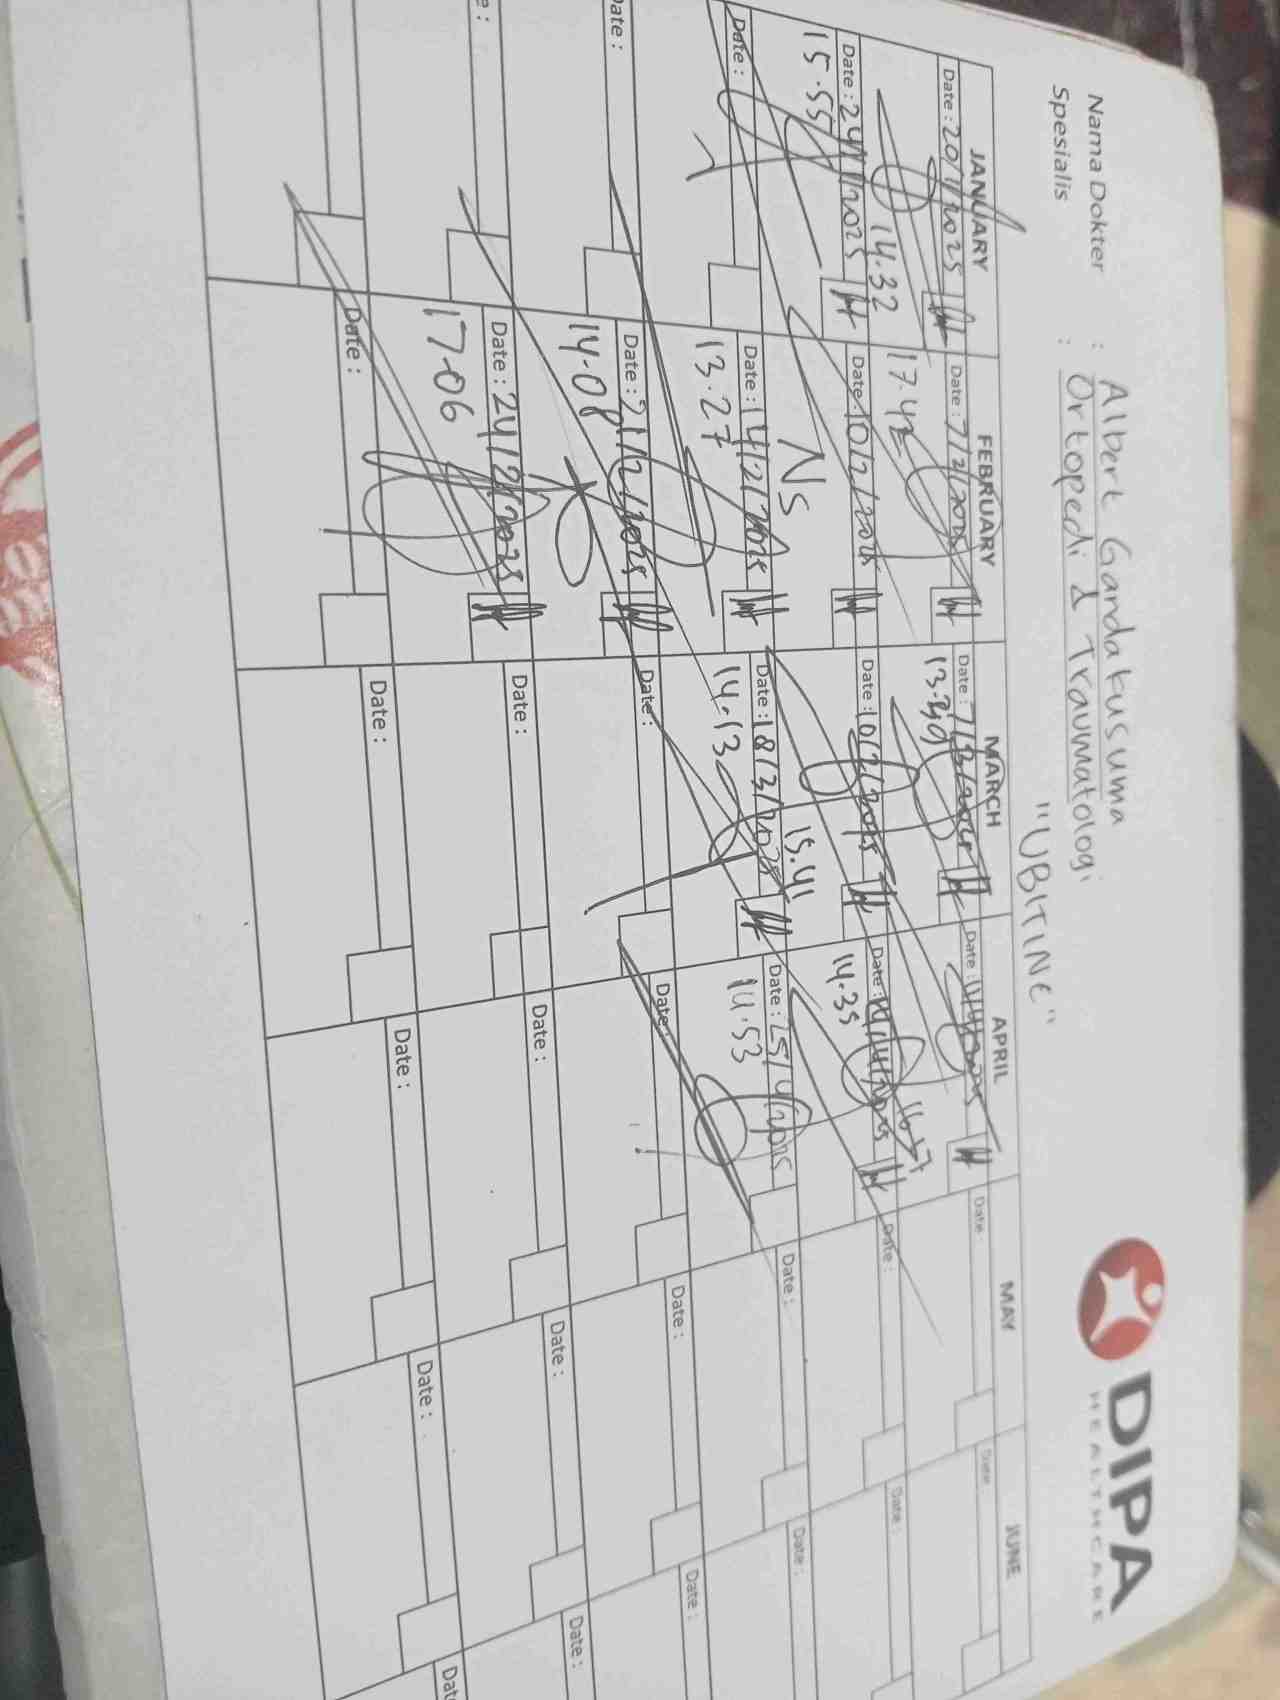 Nama Dokter : Albert Gandakusuma
Spesialis : Ortopedi & Traumatologi
"UBITINE"
DIPA
HEALTHCARE
JANUARY FEBRUARY MARCH APRIL MAY JUNE
Date : 20/1/2025 Date : 7/2/2025 Date : 7/3/2025 Date : Date : Date
14.32 17.42
Date : 24/1/2025 Date 10/2/2025 Date : 10/2/2025 Date : Date : Date :
15.55 Ns 15.41 14.35
Date : Date : 14/2/2025 Date : 18/3/2025 Date : 25/4/2025 Date : Date :
13.27 14.13 14.53
Date : Date : 21/2/2025 Date : Date : Date : Date :
14.08
Date : 24/2/2025 Date : Date : Date : Date :
17.06
Date : Date : Date : Date :